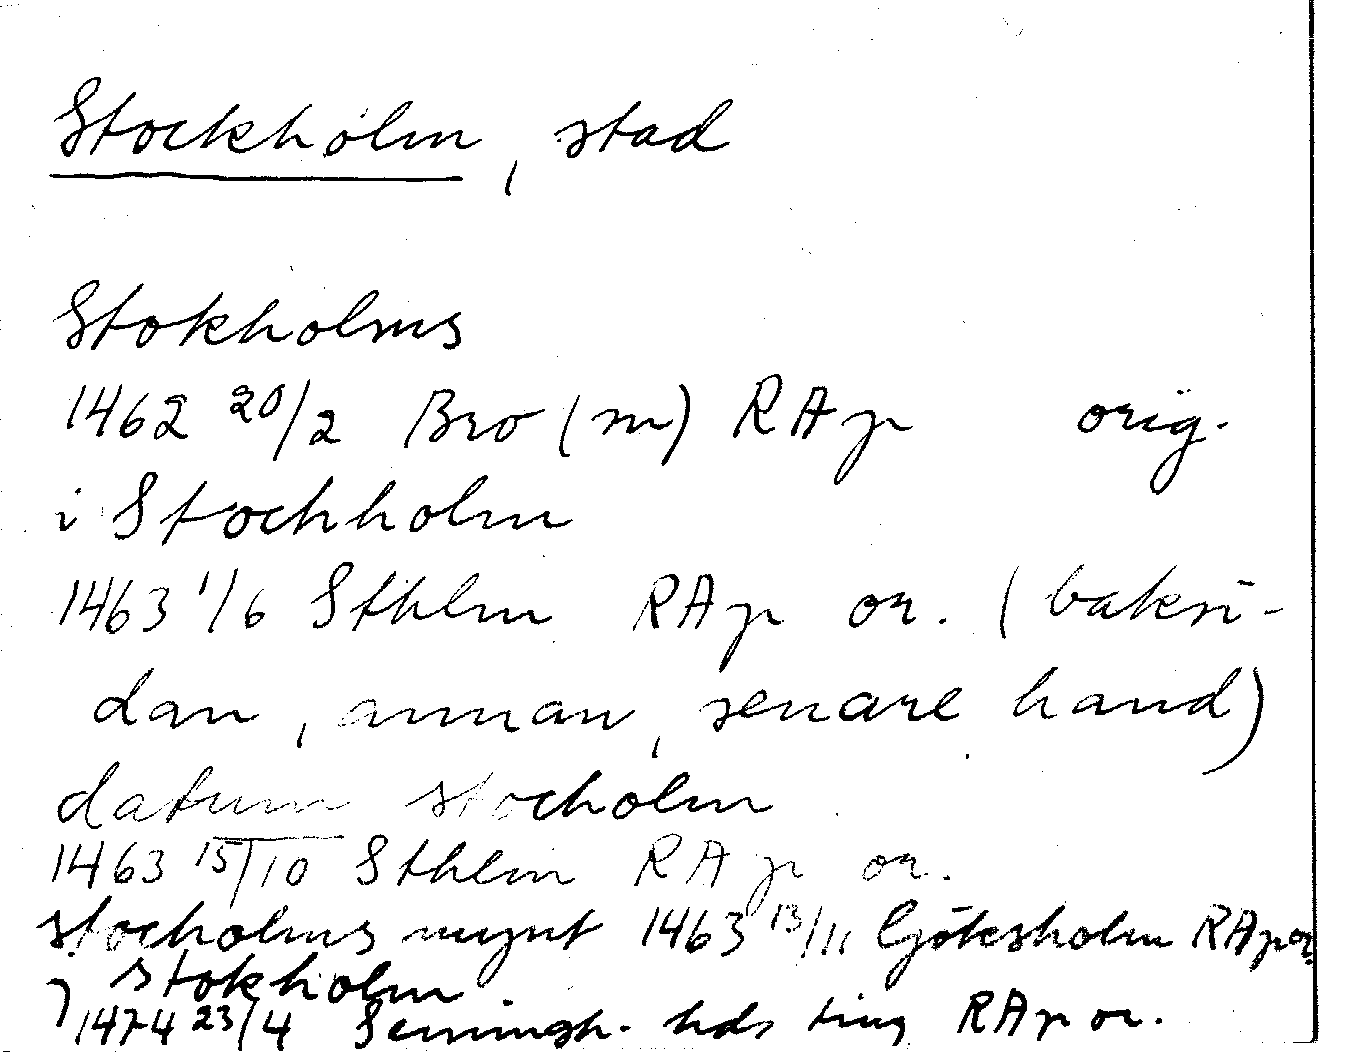 Stockholm, stad
Stokholms
1462 20/2 Bro (m) RAp orig.
i Stochholm
1463 1/6 Sthlm RAp or. (baksi-
dan, annan, senare hand)
datum stocholm
1463 15/10 Sthlm RAp or.
stocholms mynt 1463 13/11 Göksholm RAp or.
i stokholm
1474 23/4 Semingh. hds ting RAp or.